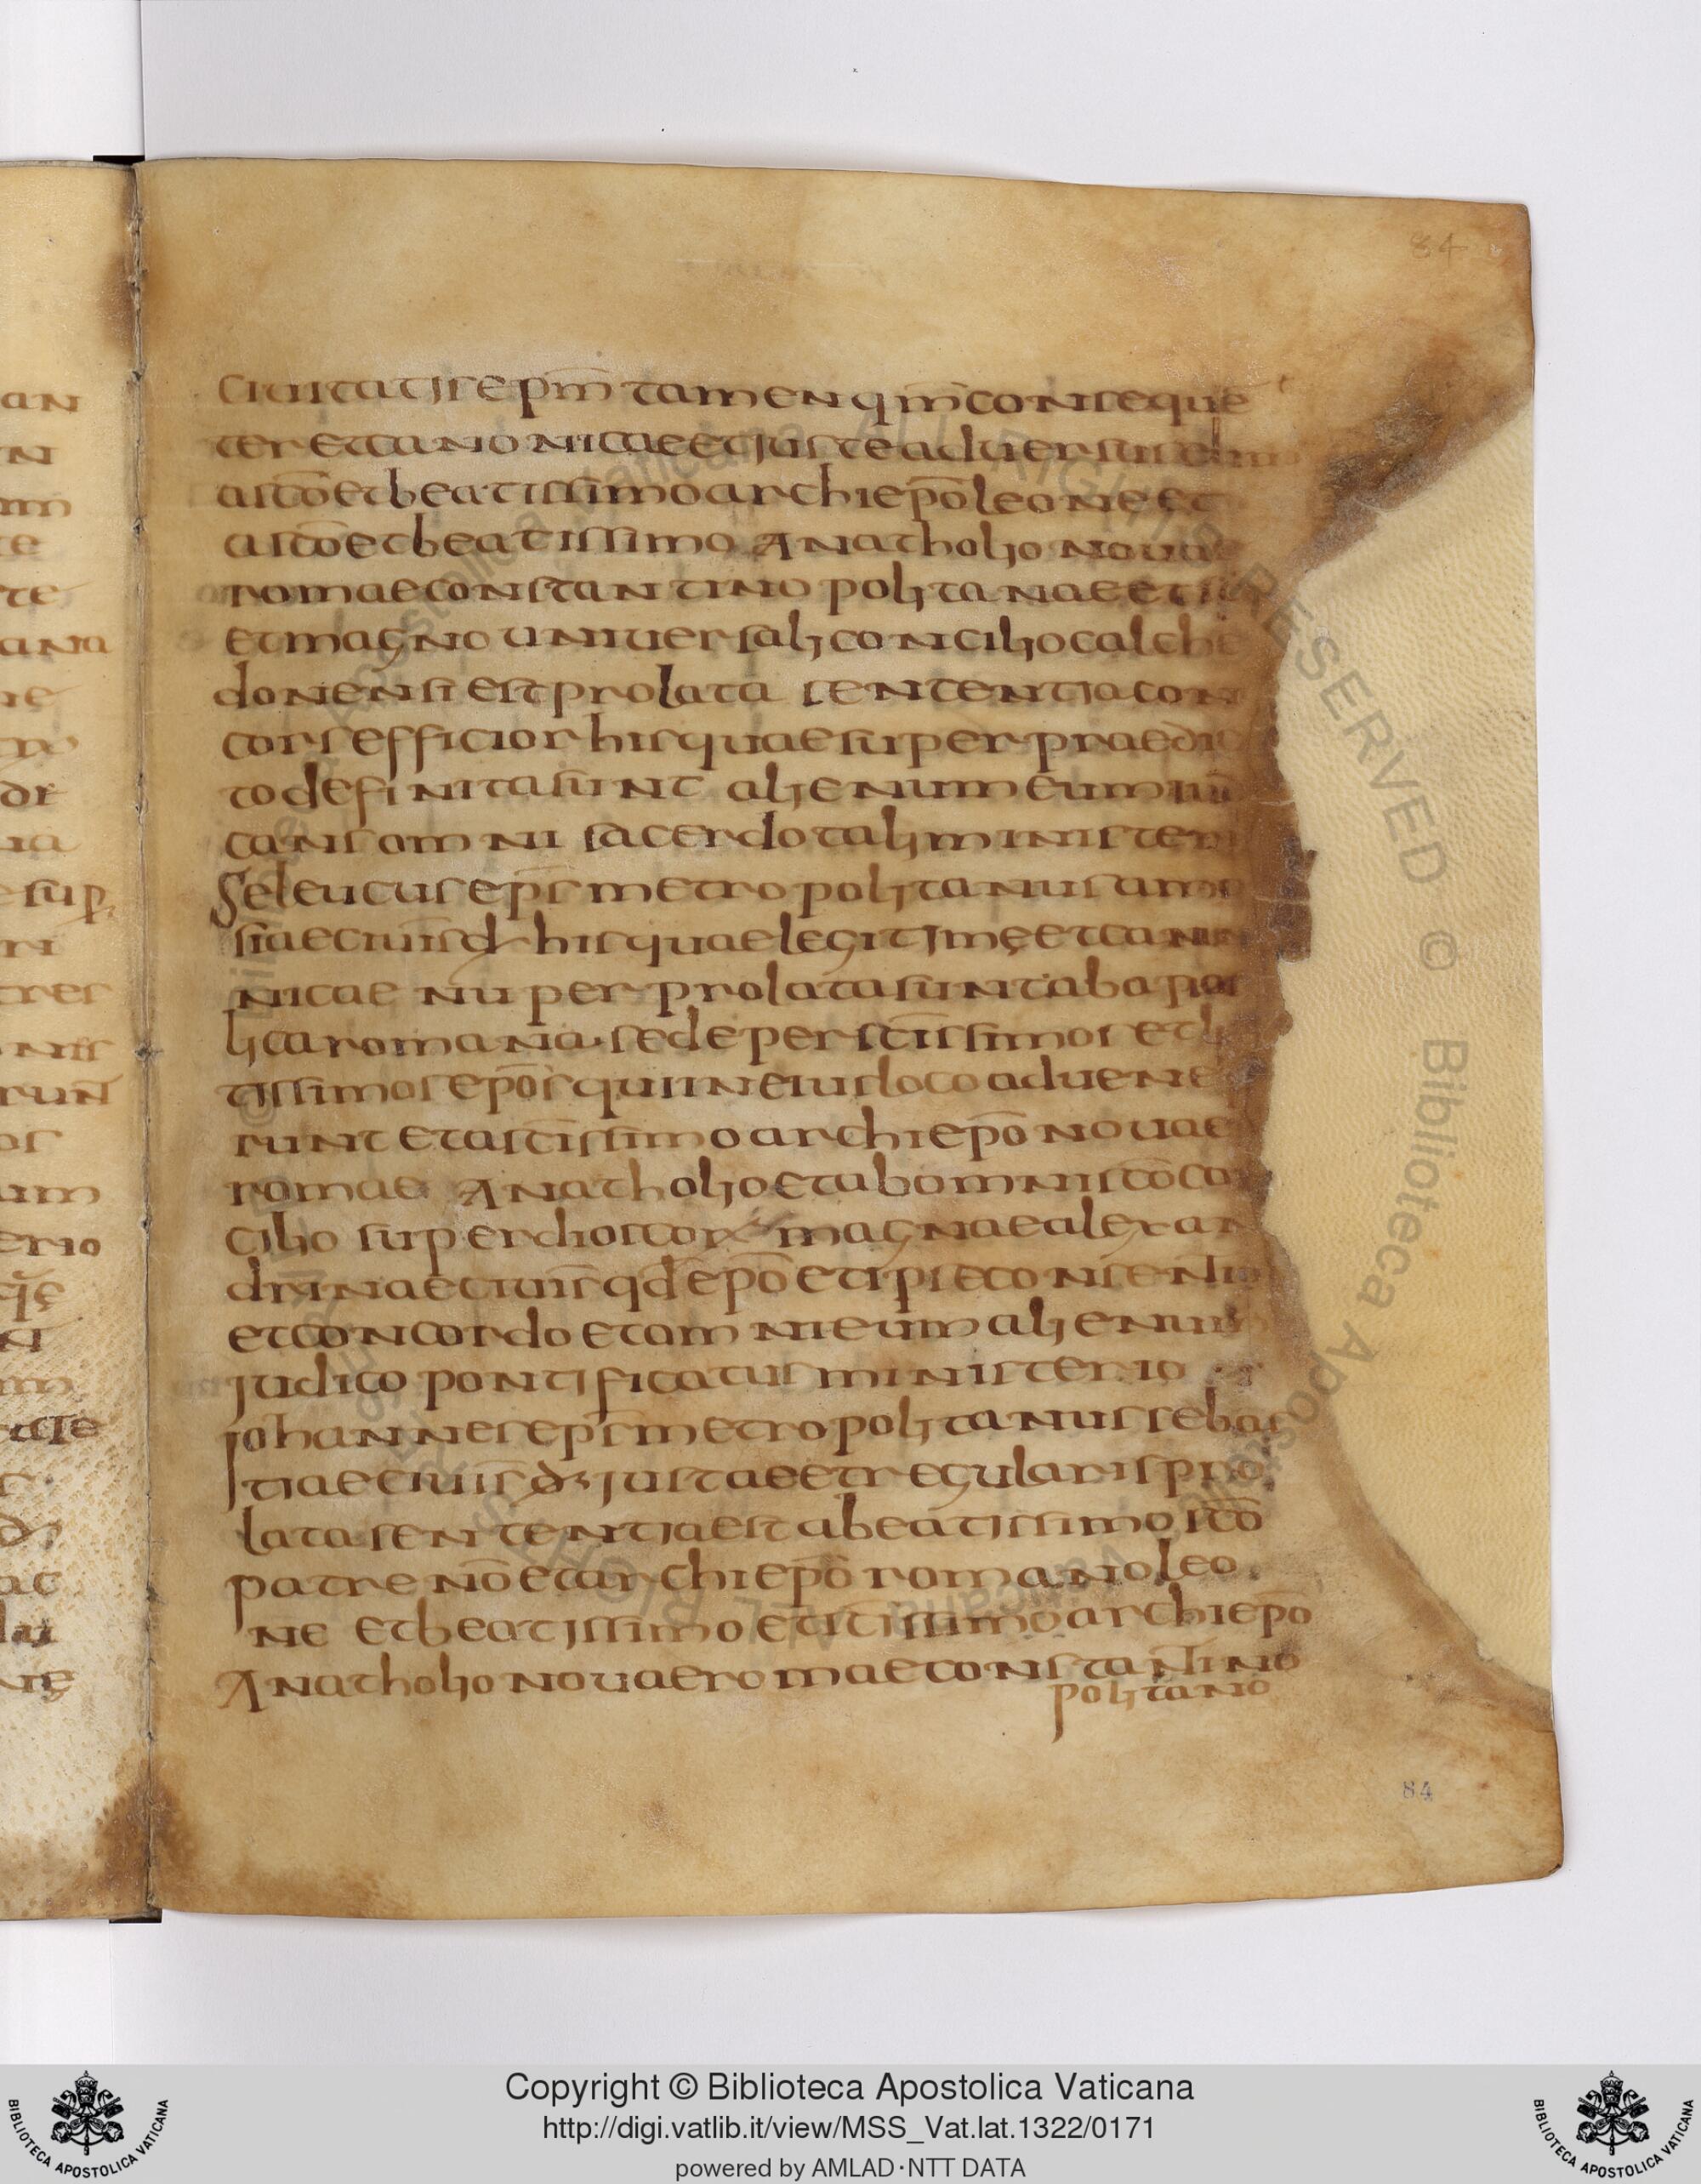 84
ciuitatis ep̄m tamen qm̄ conseque
ter et canonicae et iuste aduersus eum
a sc̄o et beatissimo archiep̄o leone et
a sc̄o et beatissimo Anatholio nouae
romae constantinopolitanae et
et magno uniuersali concilio calche
donensi est prolata sententia con
cors efficior his quae super praedic
to definita sunt alienum eum
cans omni sacerdotali ministerio
Seleucus ep̄s metropolitanus ama
siae ciuīs d his quae legitimę et cano
nicae nuper prolata sunt ab apos
lica romana sede per sc̄issimos et
tissimos ep̄os qui in eius loco aduene
runt et a sc̄issimo archiep̄o nouae
romae Anatholio et ab omni sc̄o con
cilio super dioscor magnae alexan
drinae ciuīs qd̄ ep̄o et ipse consentio
et concordo et omni eum alienum
iudico pontificatus ministerio
Iohannes ep̄s metropolitanus sebas
tiae ciuīs d iusta et regularis pro
lata sententia est a beatissimo sc̄o
patre nō et archiep̄o romano leo
ne et beatissimo et sc̄issimo archiep̄o
Anatholio nouae romae constantino
politano
84
Copyright © Biblioteca Apostolica Vaticana
http://digi.vatlib.it/view/MSS_Vat.lat.1322/0171
powered by AMLAD·NTT DATA
BIBLIOTECA APOSTOLICA VATICANA
BIBLIOTECA APOSTOLICA VATICANA